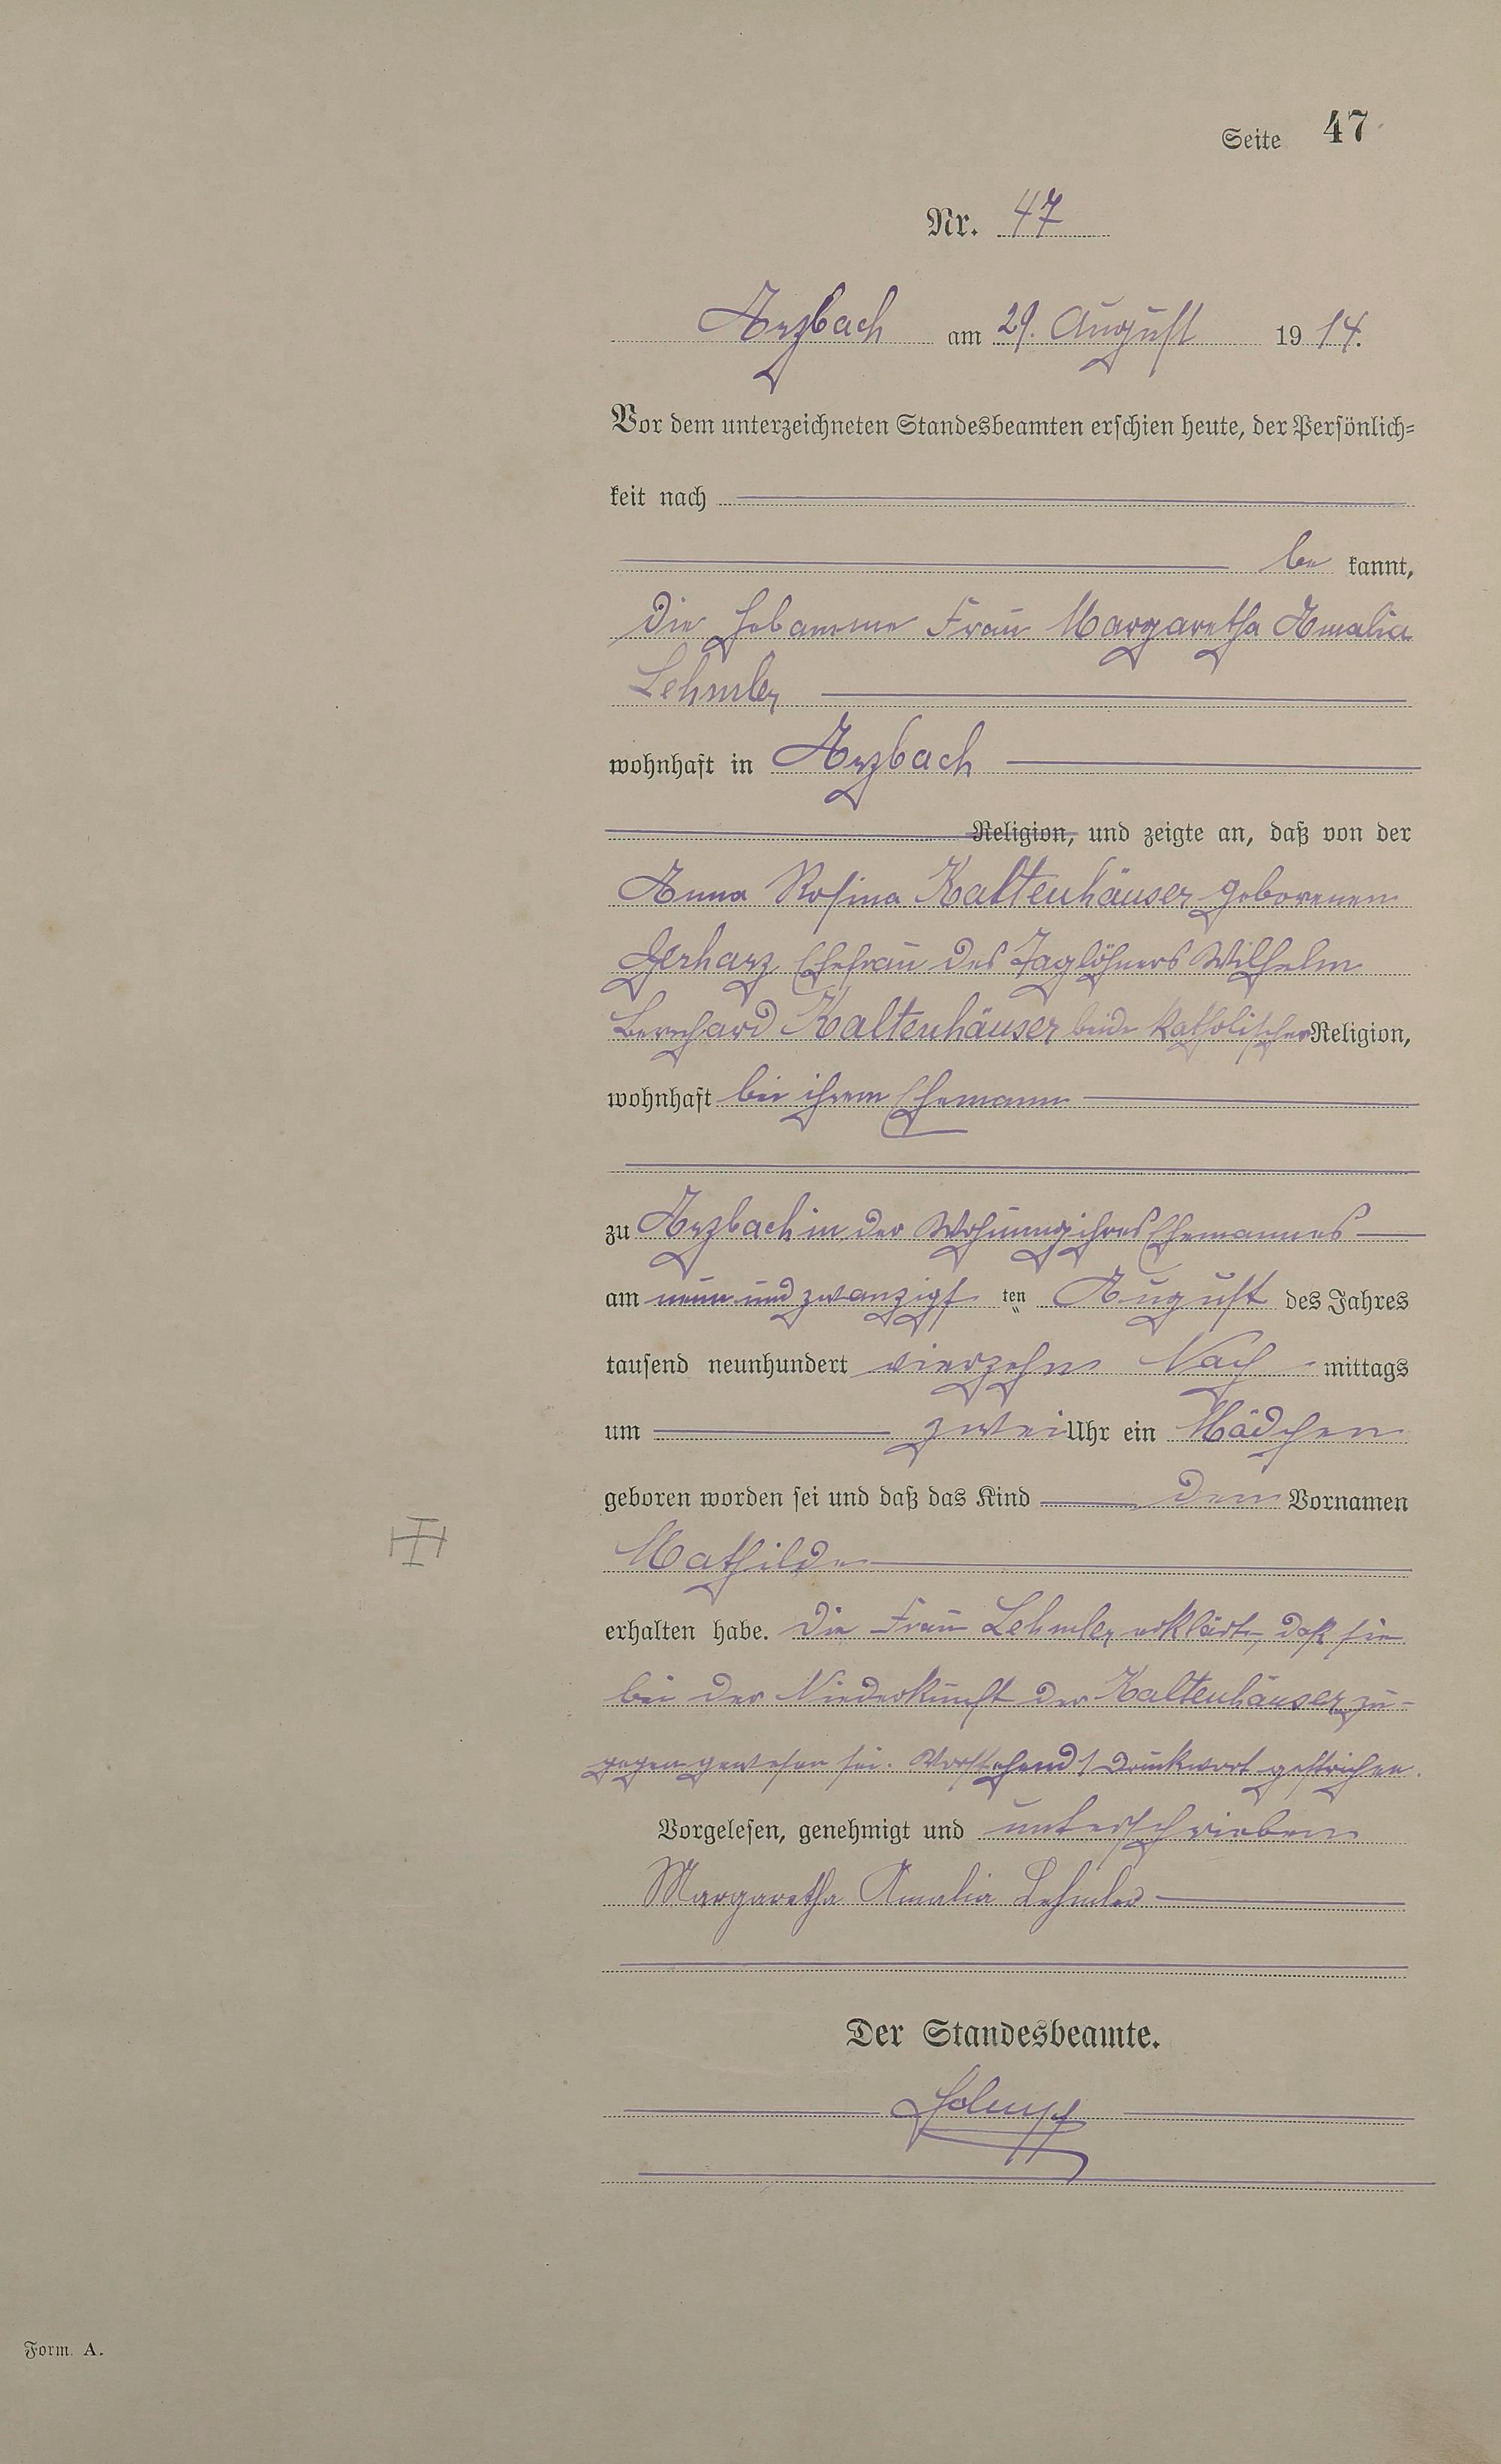 Seite 47
Nr. 47
Arzbach am 29. August 1914.
Vor dem unterzeichneten Standesbeamten erschien heute, der Persönlich-
keit nach
be kannt,
die Hebamme Frau Margaretha Amalia
Lehmler
wohnhaft in Arzbach
Religion, und zeigte an, daß von der
Anna Rosina Kaltenhäuser geborenen
Gerharz Ehefrau des Taglöhners Wilhelm
Bernhard Kaltenhäuser beide katholischer Religion,
wohnhaft bei ihrem Ehemann
zu Arzbach in der Wohnung ihres Ehemannes
am neun und zwanzigsten August des Jahres
tausend neunhundert vierzehn Nachmittags
um zwei Uhr ein Mädchen
geboren worden sei und daß das Kind den Vornamen
Mathilde
erhalten habe. Die Frau Lehmler erklärte, daß sie
bei der Niederkunft der Kaltenhäuser zu-
gegen gewesen sei. Vorstehend 1 Druckwort gestrichen.
Vorgelesen, genehmigt und unterschrieben
Margaretha Amalia Lehmler
Der Standesbeamte.
Form. A.